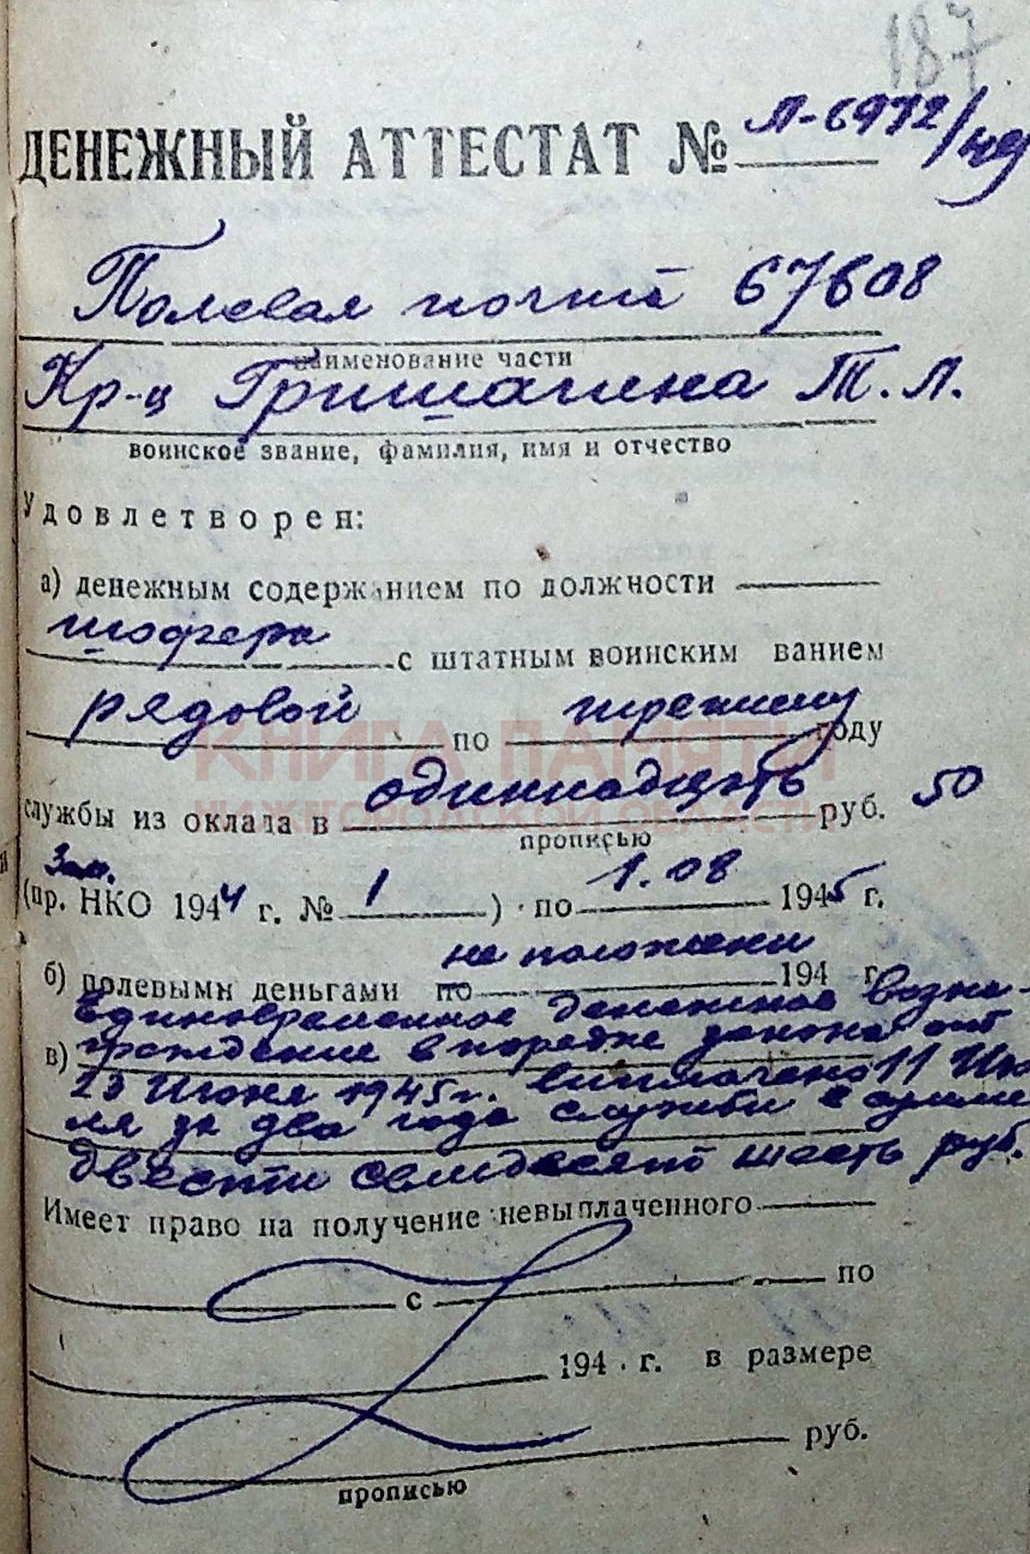 187
ДЕНЕЖНЫЙ АТТЕСТАТ № Л-6972/
Полевая почта 67608
наименование части
Кр-ц Гришагина Т. Л.
воинское звание, фамилия, имя и отчество
Удовлетворен:
а) денежным содержанием по должности
шофера с штатным воинским ванием
рядовой по третьему году
службы из оклада в одиннадцать руб. 50
прописью
Зам.
(пр. НКО 1944 г. № 1 ) по 1.08 1945 г.
б) полевыми деньгами по не положены 194 г.
Единовременное денежное возна-
в) граждение в порядке закона от
23 Июня 1945г. выплачено 11 Ию
ля за два года службы в сумме
двести семьдесят шесть руб.
Имеет право на получение невыплаченного
с по
194 г. в размере
руб.
прописью
КНИГА ПАМЯТИ
НИЖЕГОРОДСКОЙ ОБЛАСТИ